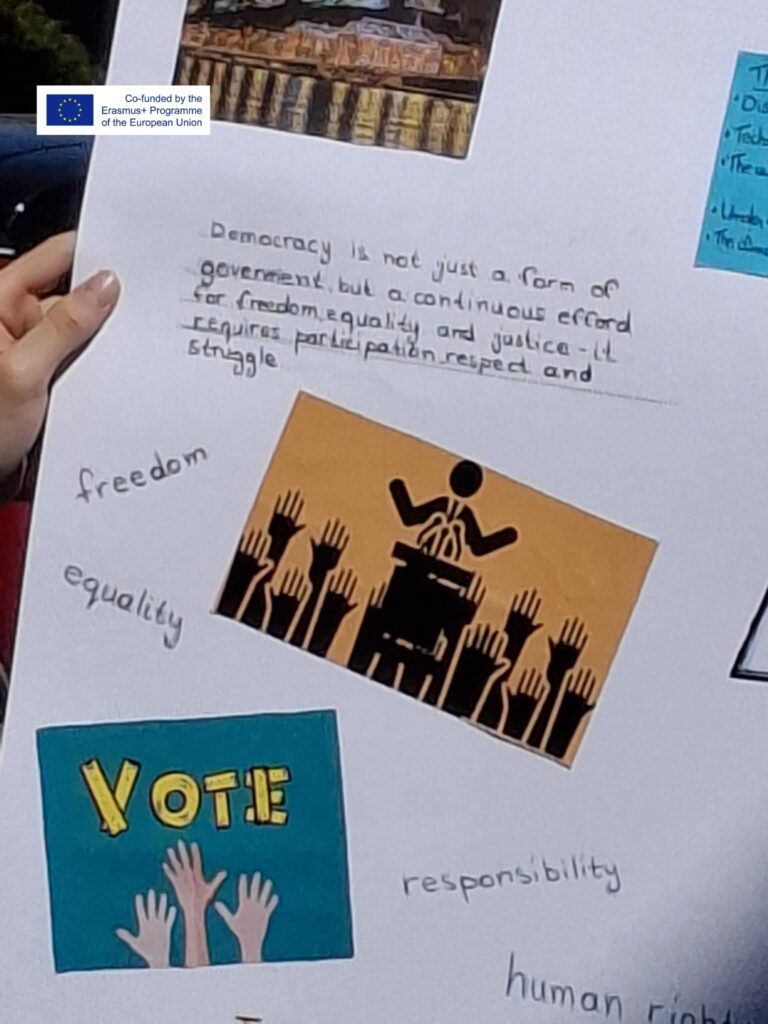 Co-funded by the
Erasmus+ Programme
of the European Union
Democracy is not just a form of
goverment, but a continuous efford
for freedom, equality and justice - it
requires participation, respect and
struggle
freedom
equality
VOTE
responsibility
human